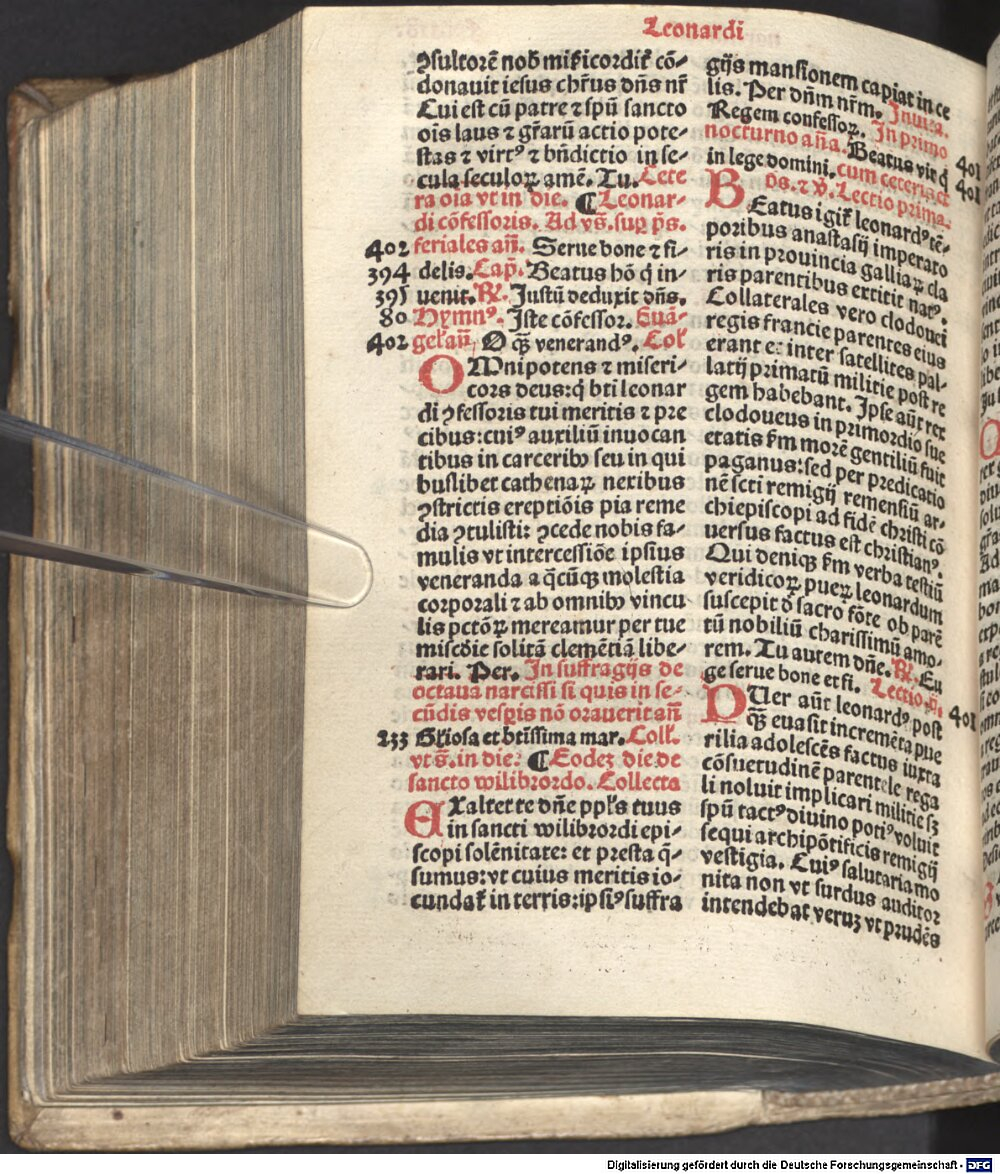 Leonardi
ꝯsultorē nob̄ miẜicordiẜ cō-
donauit iesus chr̄us dn̄s nr̄
Cui est cū patre ⁊ spū sancto
oīs laus ⁊ gr̄arū actio pote-
stas ⁊ virtꝰ ⁊ bn̄dictio in se-
cula seculoꝝ amē. Tu. Cete
ra oīa vt in die. ¶ Leonar-
di cōfessoris. Ad vs̄. suꝑ ps̄.
402 feriales an̄. Serue bone ⁊ fi-
394 delis. Cap̄. Beatus hō q̇ in-
395 uenit. ℟. Justū deduxit dn̄s.
80 Hymnꝰ. Iste cōfessor. Euā-
402 gel̄. an̄. O qꝫ̄ venerandꝰ. Col̄
OMnipotens ⁊ miseri-
cors deus: q̇ bti leonar
di ꝯfessoris tui meritis ⁊ pre
cibus: cuiꝰ auxiliū inuocan
tibus in carceribꝰ seu in qui
buslibet cathenaꝝ nexibus
ꝯstrictis ereptiōis pia reme
dia ꝯtulisti: ꝯcede nobis fa-
mulis vt intercessiōe ipsius
veneranda a q̄cūqꝫ molestia
corporali ⁊ ab omnibꝰ vincu
lis pctōꝝ mereamur per tue
miscdie solitā clemētiā libe-
rari. Per. In suffragijs de
octaua narcissi si quis in se-
cūdis vesꝑis nō orauerit an̄
233 Gl̄iosa et btīssima mar. Coll̄.
vt s̄. in die. ¶ Eodeꝫ die de
sancto wilibrordo. Collecta
EXaltet te dn̄e ppl̄s tuus
in sancti wilibrordi epi-
scopi solēnitate: et presta q̄-
sumus: vt cuius meritis io-
cundaẜ in terris: ipsiꝰ suffra
gijs mansionem capiat in ce
lis. Per dn̄m nr̄m. Inuita.
Regem confessoꝝ. In primo
nocturno an̄a. Beatus vir q̇ 401
in lege domini. cum ceteris et 401
p̄s. ⁊ ℣. Lectio prima.
BEatus igiẜ leonardꝰ tē-
poribus anastasij imperato
ris in prouincia galliaꝝ cla
ris parentibus extitit natꝰ.
Collaterales vero clodouei
regis francie parentes eius
erant et inter satellites pal-
latij primatū militie post re
gem habebant. Ipse aūt rex
clodoueus in primordio sue
etatis s̄m morē gentiliū fuit
paganus: sed per predicatio
nē scti remigij remensiū ar-
chiepiscopi ad fidē christi cō
uersus factus est christianꝰ.
Qui deniqꝫ s̄m verba testiū
veridicoꝝ pueꝝ leonardum
suscepit d̄ sacro fōte ob parē
tū nobiliū charissimū amo-
rem. Tu autem dn̄e. ℟. Eu
ge serue bone et fi. Lectio .ij. 401
PUer aūt leonardꝰ post
qꝫ̄ euasit incremēta pue
rilia adolescēs factus iuxta
cōsuetudinē parentele rega
li noluit implicari militie sꝫ
spū tactꝰ diuino potiꝰ voluit
sequi archipōtificis remigij
vestigia. Cuiꝰ salutaria mo
nita non vt surdus auditor
intendebat veruꝫ vt prudēs
Digitalisierung gefördert durch die Deutsche Forschungsgemeinschaft - DFG